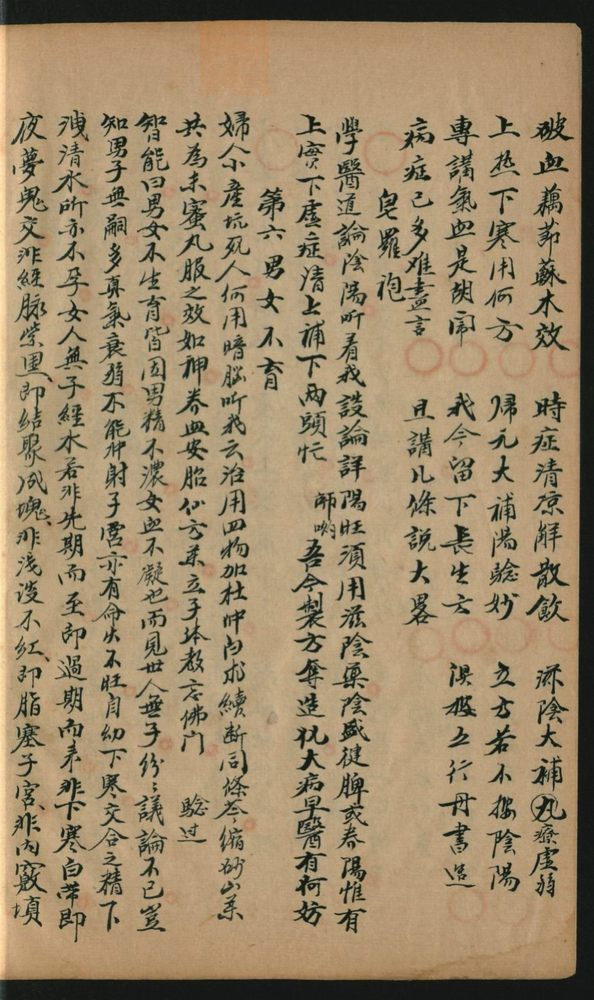 破血藕節蘇木效 時症清凉解散飲 滋陰大補丸療虛弱
上热下寒用何方 歸元大補陽驗妙 立方若不按陰陽
專講氣血是胡鬧 我今留下長生方 俱按五行丹書造
病症已多难盡言 且講几條說大畧
皂羅袍
學醫道論陰陽听着我設論詳陽旺須用滋陰藥陰盛健脾或春陽惟有
上實下虛症清上補下兩頭忙 師喲 吾今製方奪造犯大病早醫有何妨
第六男女不育
婦人小產坑死人何用暗腦听我云治用四物加杜仲白朮續斷同條芩缩砂山药
共為末蜜丸服之效如神养血安胎仙方药立子体教忘佛門 驗过
智能曰男女不生育皆因男精不濃女血不凝也而見世人無子紛々議論不已豈
知男子無嗣多真氣衰弱不能冲射子宮亦有命火不旺自幼下寒交合之精下
洩清水所亦不孕女人無子經水若非先期而至即過期而来非下寒白带即
夜夢鬼交非經脉紫黑即結聚成塊非浅淡不紅即脂塞子宮非内竅損